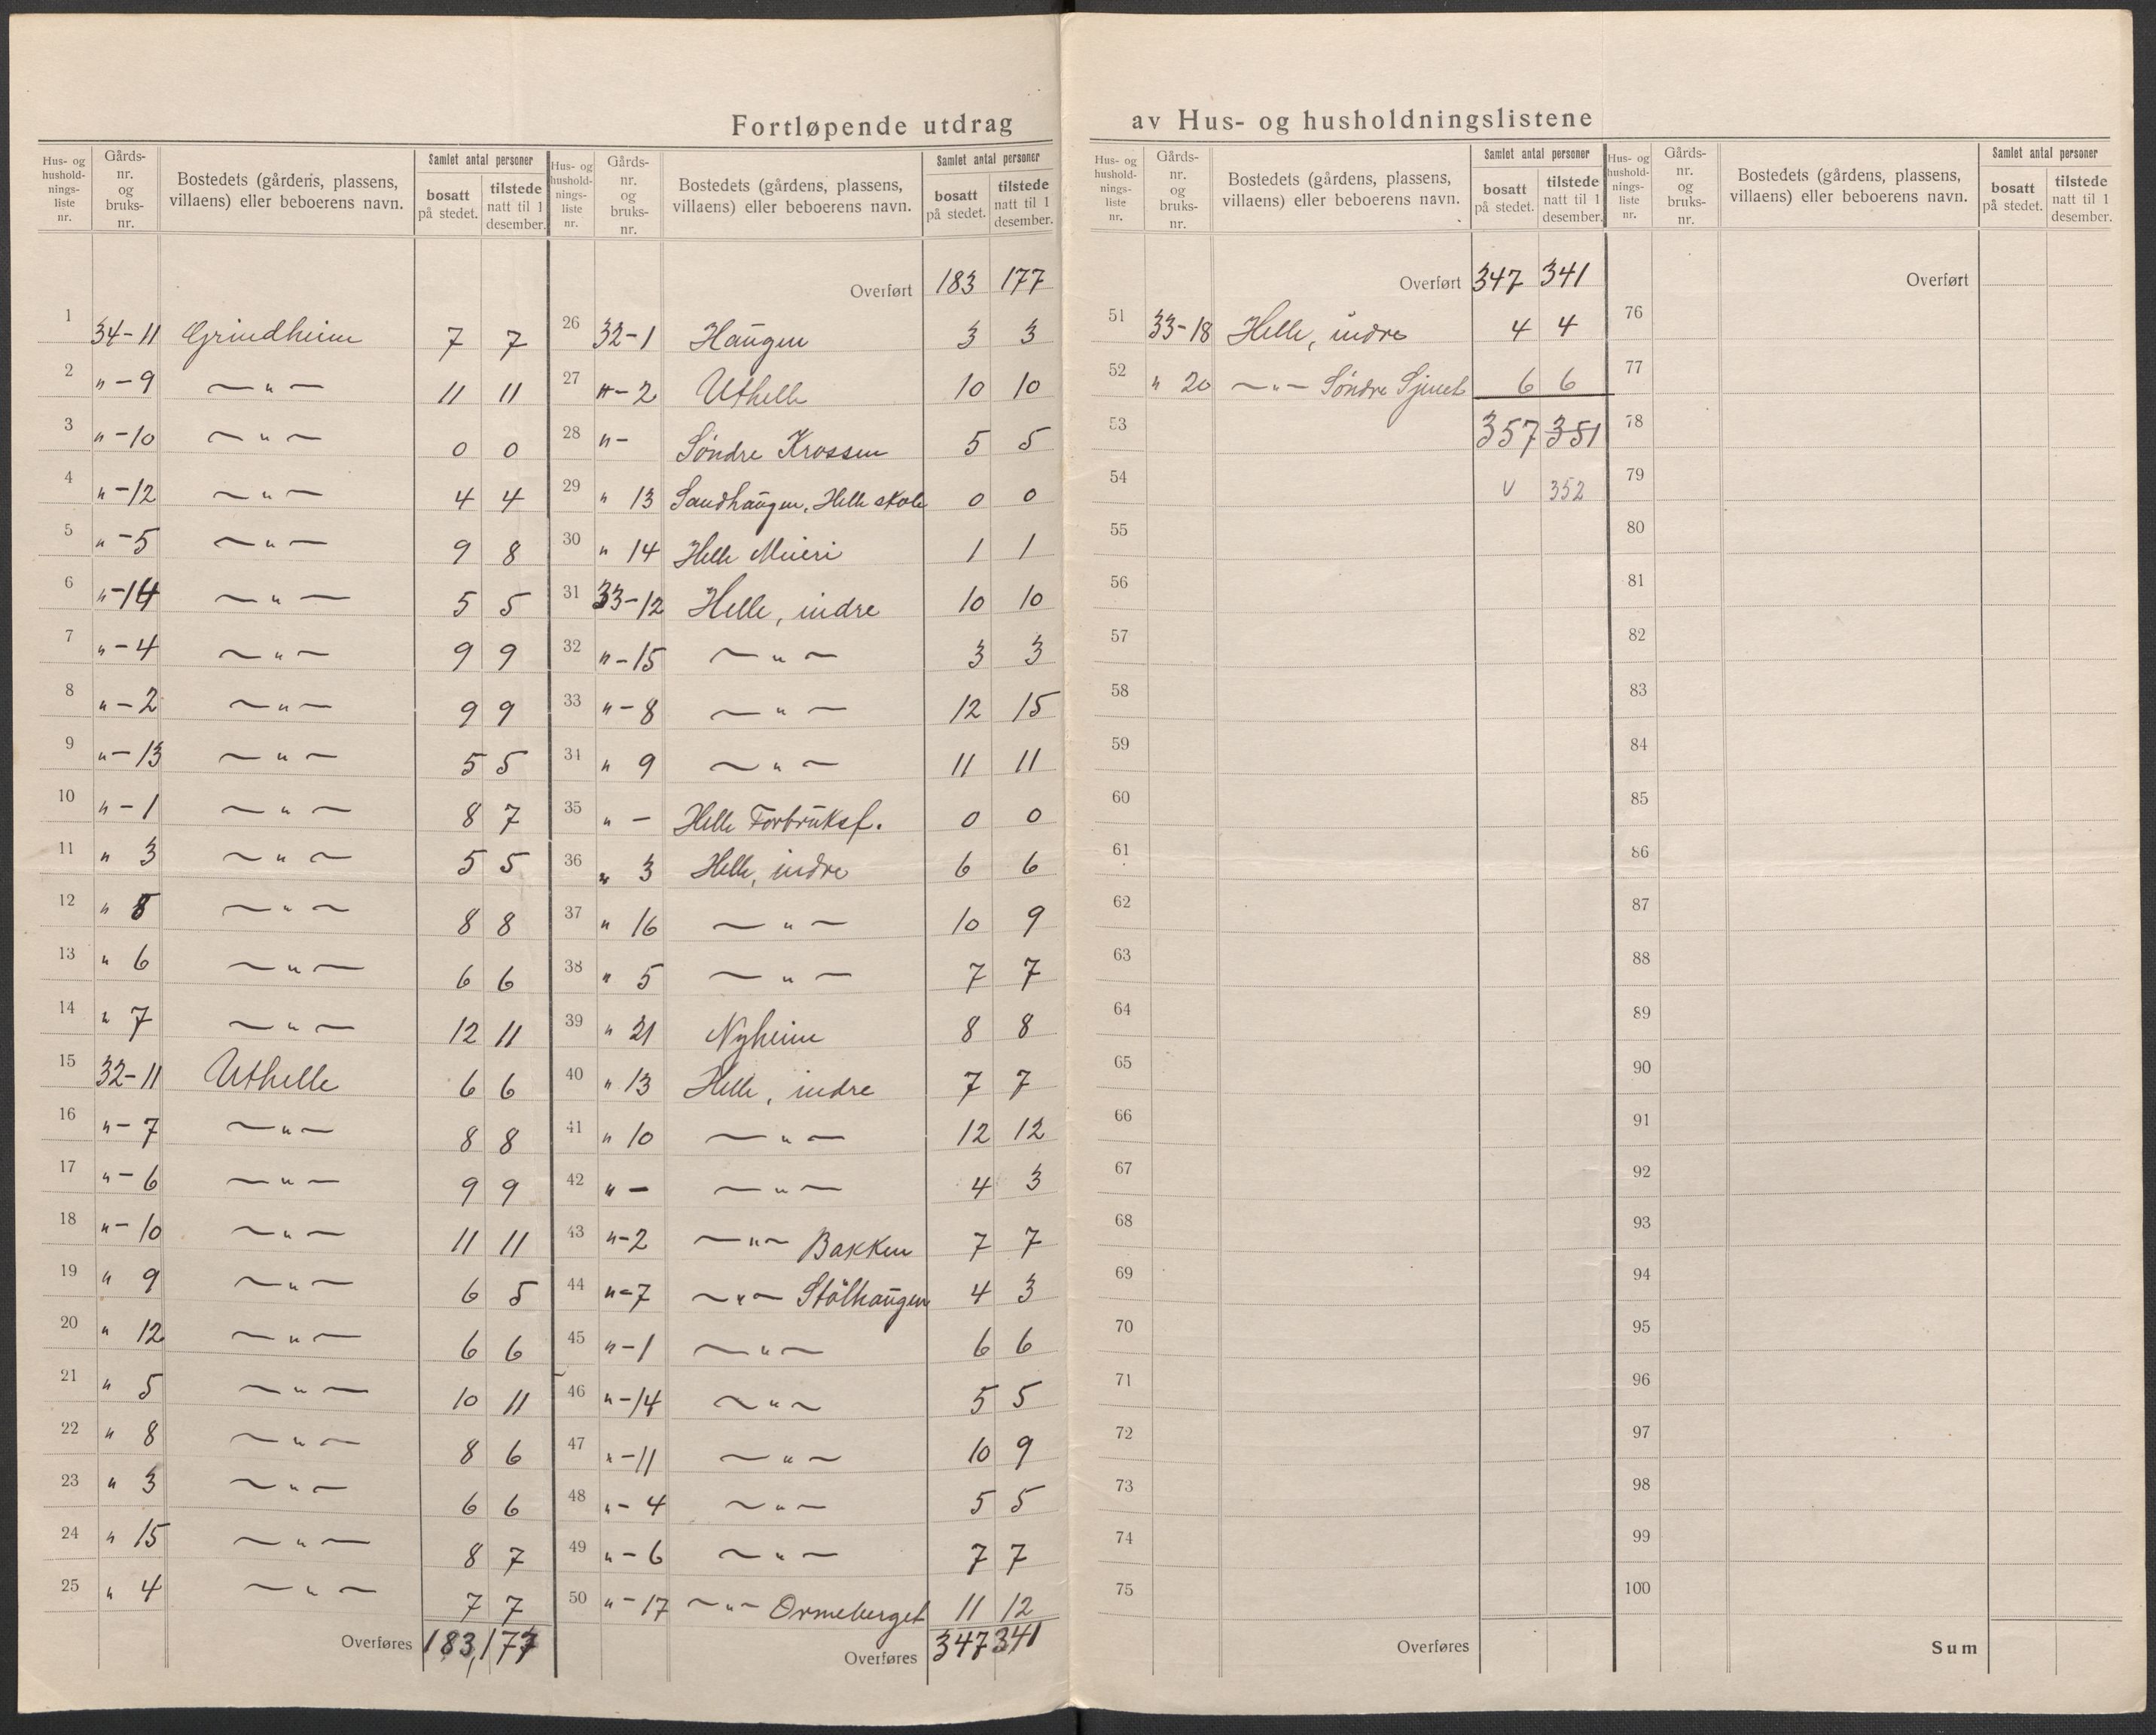 Fortløpende utdrag av Hus- og husholdningslistene
Hus- og husholdningsliste nr. | Gårds-nr. og bruks-nr. | Bostedets (gårdens, plassens, villaens) eller beboerens navn. | Samlet antal personer | bosatt på stedet. | tilstede natt til 1 desember.
1 34-11 Grindheim 7 7
2 " - 9 — " — 11 11
3 " - 10 — " — 0 0
4 " - 12 — " — 4 4
5 " - 5 — " — 9 8
6 " - 14 — " — 5 5
7 " - 4 — " — 9 9
8 " - 2 — " — 9 9
9 " - 13 — " — 5 5
10 " - 1 — " — 8 7
11 " 3 — " — 5 5
12 " 8 — " — 8 8
13 " 6 — " — 6 6
14 " 7 — " — 12 11
15 32-11 Uthelle 6 6
16 " - 7 — " — 8 8
17 " - 6 — " — 9 9
18 " - 10 — " — 11 11
19 " 9 — " — 6 5
20 " 12 — " — 6 6
21 " 5 — " — 10 11
22 " 8 — " — 8 6
23 " 3 — " — 6 6
24 " 15 — " — 8 7
25 " 4 — " — 7 7
Overføres 183 177
Hus- og husholdningsliste nr. | Gårds-nr. og bruks-nr. | Bostedets (gårdens, plassens, villaens) eller beboerens navn. | Samlet antal personer | bosatt på stedet. | tilstede natt til 1 desember.
Overført 183 177
26 32-1 Haugen 3 3
27 " - 2 Uthelle 10 10
28 " - Søndre Krossen 5 5
29 " 13 Sandhaugen, Helle skole 0 0
30 " 14 Helle Meieri 1 1
31 33-12 Helle, indre 10 10
32 " - 15 — " — 3 3
33 " - 8 — " — 12 15
34 " 9 — " — 11 11
35 " - Helle Forbruksf. 0 0
36 " 3 Helle, indre 6 6
37 " 16 — " — 10 9
38 " 5 — " — 7 7
39 " 21 Nyheim 8 8
40 " 13 Helle, indre 7 7
41 " 10 — " — 12 12
42 " - — " — 4 3
43 " - 2 — " — Bakken 7 7
44 " - 7 — " — Stølhaugen 4 3
45 " - 1 — " — 6 6
46 " - 14 — " — 5 5
47 " - 11 — " — 10 9
48 " - 4 — " — 5 5
49 " - 6 — " — 7 7
50 " - 17 — " — Ormeberget 11 12
Overføres 347 341
Hus- og husholdningsliste nr. | Gårds-nr. og bruks-nr. | Bostedets (gårdens, plassens, villaens) eller beboerens navn. | Samlet antal personer | bosatt på stedet. | tilstede natt til 1 desember.
Overført 347 341
51 33-18 Helle, indre 4 4
52 " 20 — " — Søndre 6 6
53 357 351
54 v 352
55
56
57
58
59
60
61
62
63
64
65
66
67
68
69
70
71
72
73
74
75
Overføres
Hus- og husholdningsliste nr. | Gårds-nr. og bruks-nr. | Bostedets (gårdens, plassens, villaens) eller beboerens navn. | Samlet antal personer | bosatt på stedet. | tilstede natt til 1 desember.
Overført
76
77
78
79
80
81
82
83
84
85
86
87
88
89
90
91
92
93
94
95
96
97
98
99
100
Sum